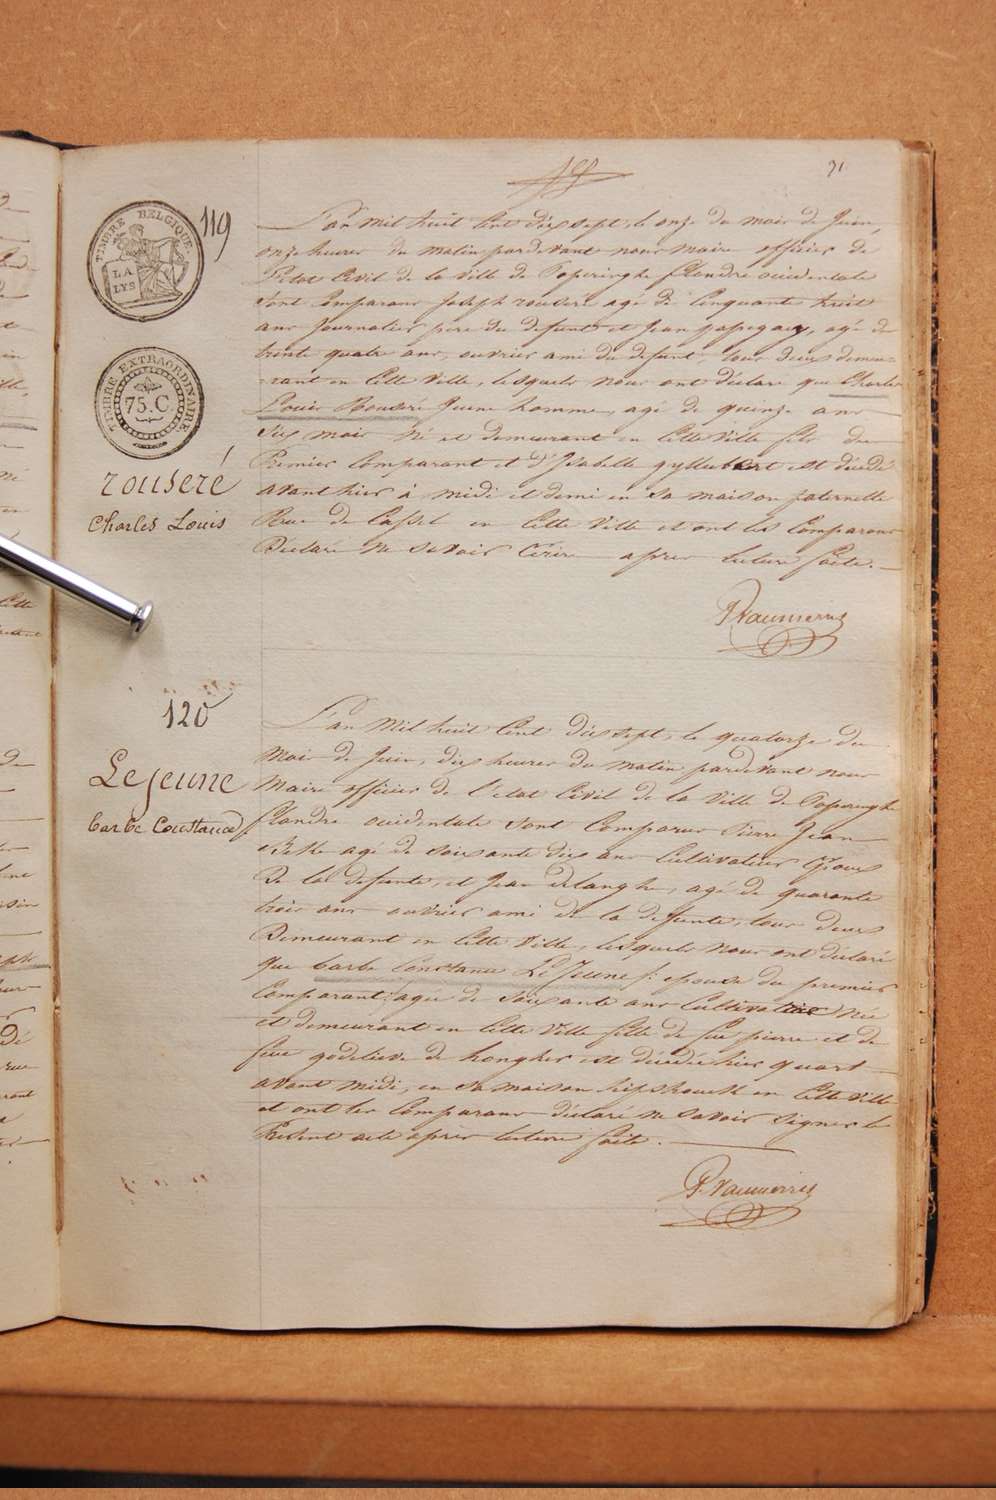 31
TIMBRE BELGIQUE.
LA
LYS
119
L'an mil huit cent dix sept, le onze du mois de Juin,
onze heures du matin pardevant nous maire officier de
l'etat Civil de la ville de Poperinghe flandre occidentale
sont Comparus Joseph rouseré agé de Cinquante huit
ans Journalier pere du defunt et Jean papegaey, agé de
trente quatre ans, ouvrier ami du defunt, tous deux demeu=
=rant en Cette Ville, lesquels nous ont déclaré que Charles
Louis Rouseré Jeune homme, agé de quinze ans
Six mois né et demeurant en Cette Ville fils du
Premier Comparant et d'Isabelle gyllebert est décédé
avant hier à midi et demi en sa maison paternelle
Rue de Cassel en Cette Ville et ont les Comparans
Déclaré ne Savoir Ecrire apres lecture faite.
TIMBRE EXTRAORDINAIRE.
75.C
rouseré
Charles Louis
P. Vaumerris
120
Lejeune
barbe Constance
L'an Mil huit Cent dix sept, le quatorze du
Mois de Juin, dix heures du matin pardevant nous
Maire officier de l'etat Civil de la Ville de Poperinghe
flandre occidentale sont Comparus Pierre Jean
agé de Soixante dix ans Cultivateur Epoux
De la defunte, et Jean delanghe, agé de quarante
trois ans ouvrier ami de la defunte, tous deux
Demeurant en Cette Ville, lesquels nous ont déclaré
que barbe Constance Le Jeune /: epouse du premier
Comparant :/ agée de Soixante ans Cultivatrice née
et demeurant en Cette Ville fille de feu pierre et de
feue godelieve de hongher est décédée hier quart
avant midi, en sa maison en Cette Ville
et ont les Comparans déclaré ne Savoir Signer le
Present acte après lecture faite.
P. Vaumerris